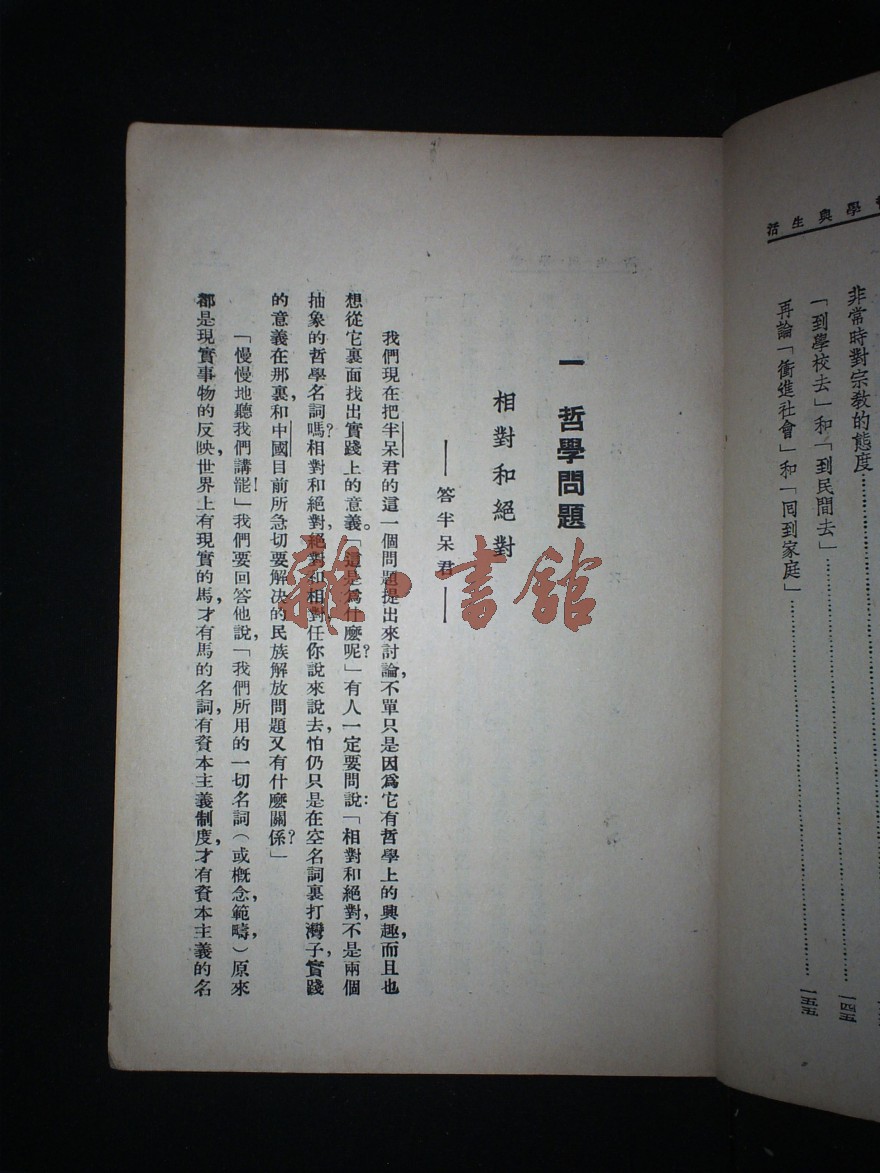 學與生活
非常時對宗教的態度……一四五
「到學校去」和「到民間去」
再論「衝進社會」和「囘到家庭」……一五五
一　哲學問題
相對和絕對
——答半呆君——
我們現在把半呆君的這一個問題提出來討論，不單只是因爲它有哲學上的興趣，而且也
想從它裏面找出實踐上的意義。「這是爲什麼呢？」有人一定要問說：「相對和絕對，不是兩個
抽象的哲學名詞嗎？相對和絕對，絕對和相對，任你說來說去，怕仍只是在空名詞裏打灣子，實踐
的意義在那裏，和中國目前所急切要解決的民族解放問題又有什麼關係？」
「慢慢地聽我們講罷！」我們要回答他說，「我們所用的一切名詞（或概念，範疇，）原來
都是現實事物的反映，世界上有現實的馬，才有馬的名詞，有資本主義制度，才有資本主義的名
雜·書館